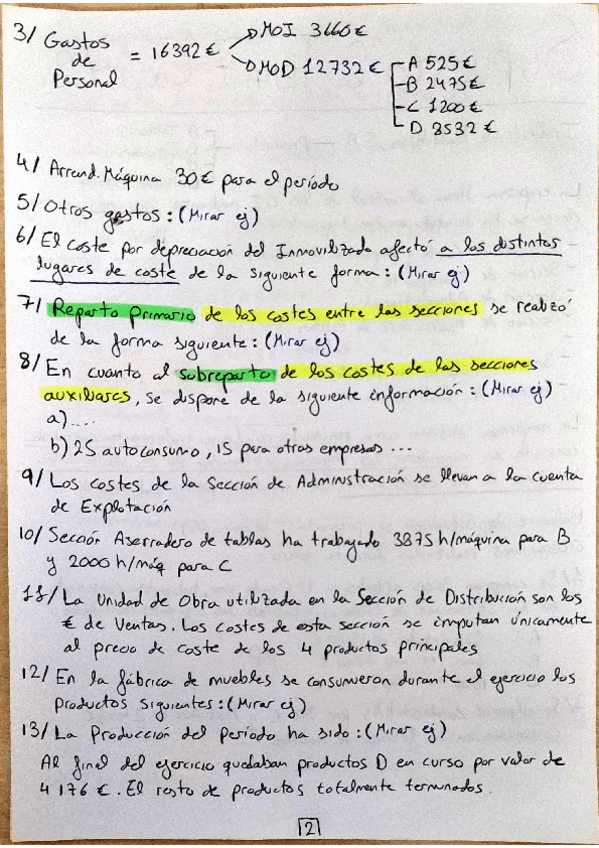 3/ Gastos de Personal = 16392 € → MOI 3660 €
→ MOD 12732 € - A 525 €
- B 2475 €
- C 1200 €
- D 8532 €
4/ Arrend. Máquina 30 € para el período
5/ Otros gastos : (Mirar ej)
6/ El coste por depreciación del Inmovilizado afectó a los distintos
lugares de coste de la siguiente forma : (Mirar ej)
7/ Reparto Primario de los costes entre las secciones se realizó
de la forma siguiente : (Mirar ej)
8/ En cuanto al subreparto de los costes de las secciones
auxiliares, se dispone de la siguiente información : (Mirar ej)
a) ....
b) 25 autoconsumo, 15 para otras empresas ...
9/ Los costes de la Sección de Administración se llevan a la cuenta
de Explotación
10/ Sección Aserradero de tablas ha trabajado 3875 h/máquina para B
y 2000 h/máq para C
11/ La Unidad de Obra utilizada en la Sección de Distribución son los
€ de Ventas. Los costes de esta sección se imputan únicamente
al precio de coste de los 4 productos principales
12/ En la fábrica de muebles se consumieron durante el ejercicio los
Productos siguientes : (Mirar ej)
13/ La Producción del Período ha sido : (Mirar ej)
Al final del ejercicio quedaban productos D en curso por valor de
4176 €. El resto de productos totalmente terminados.
2